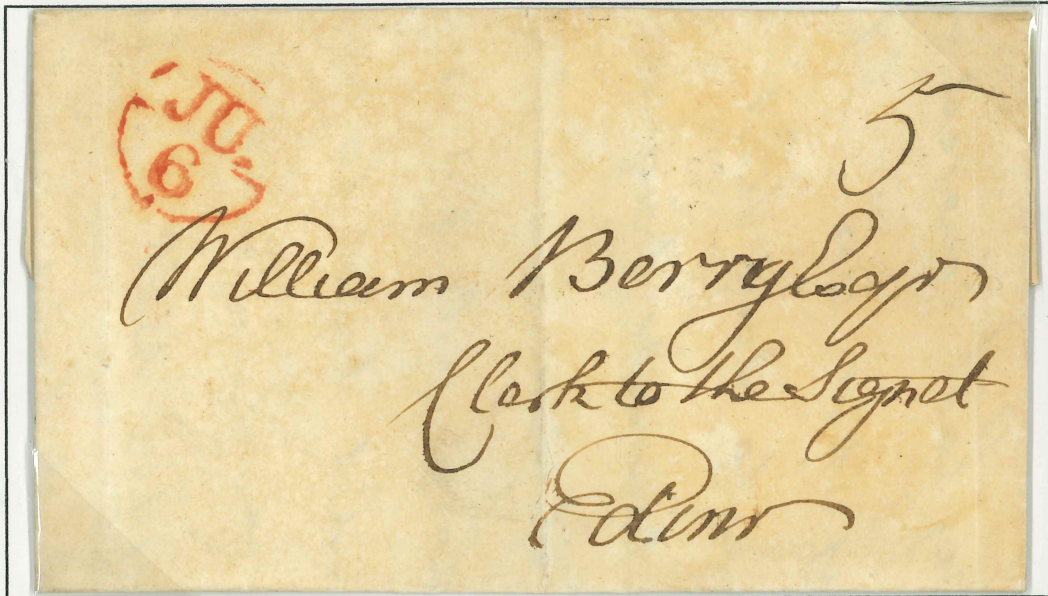 JU.
6
5
William Berry Esqr
Clerk to the Signet
Edinr